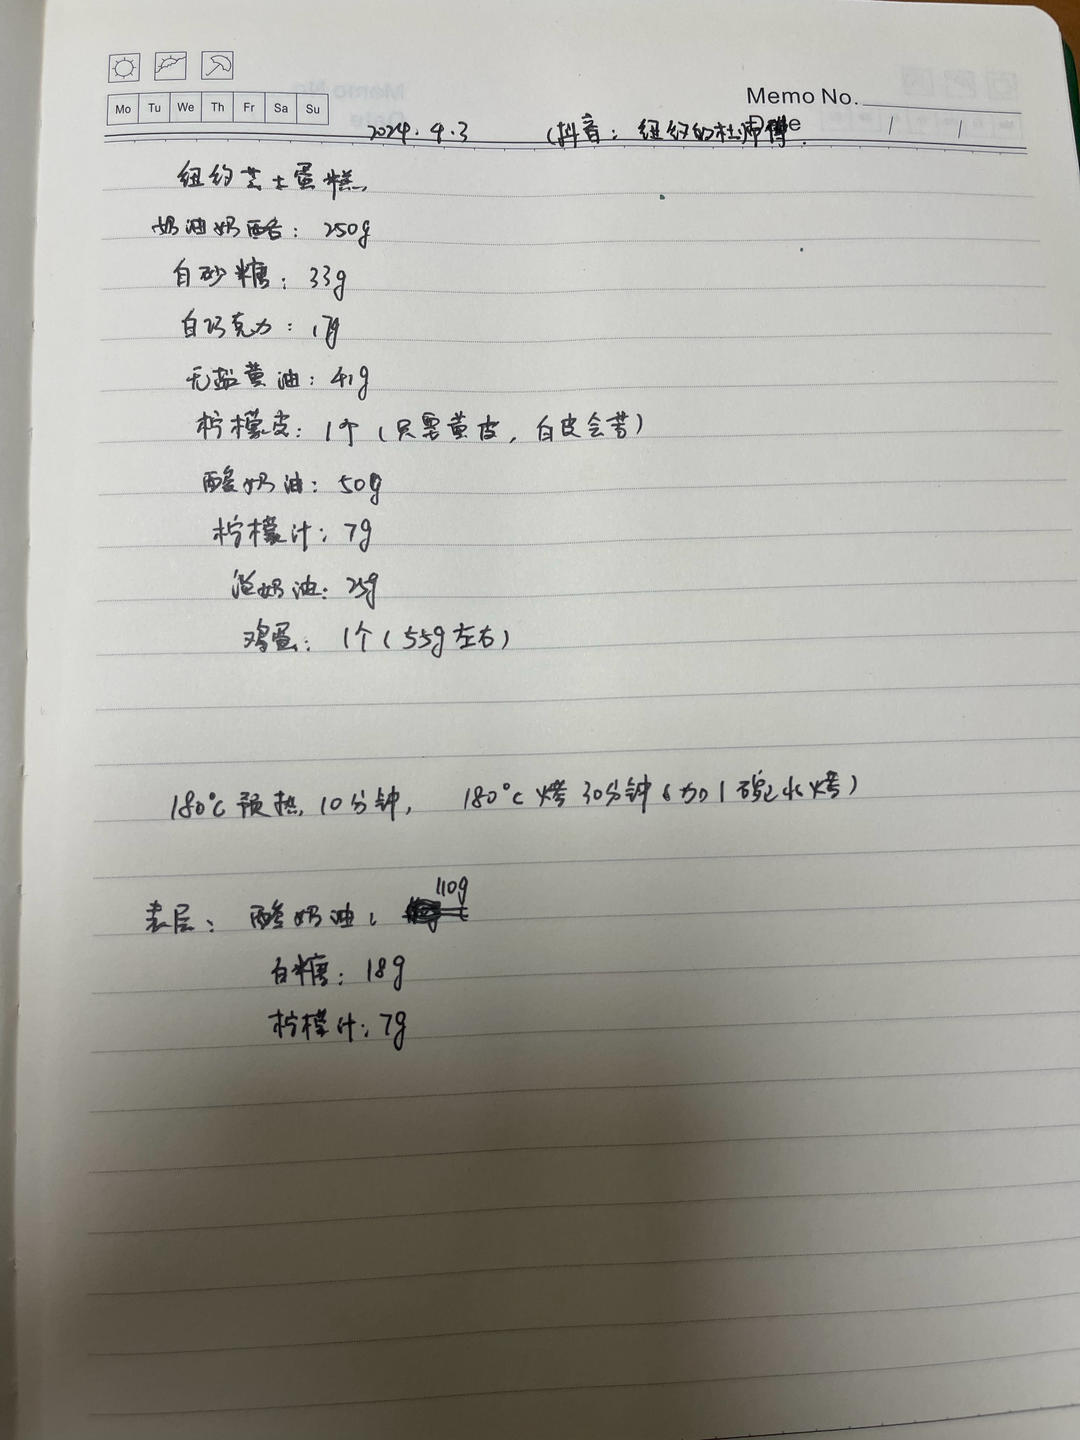 Mo Tu We Th Fr Sa Su
Memo No.
Date / /
2024.4.3 (抖音：纽约的杜师傅.
纽约芝士蛋糕
奶油奶酪：250g
白砂糖：33g
白巧克力：17g
无盐黄油：41g
柠檬皮：1个（只要黄皮，白皮会苦）
酸奶油：50g
柠檬汁：7g
淡奶油：25g
鸡蛋：1个（55g左右）
180°C预热10分钟， 180°C烤30分钟（加1碗水烤）
表层：酸奶油：110g
白糖：18g
柠檬汁：7g